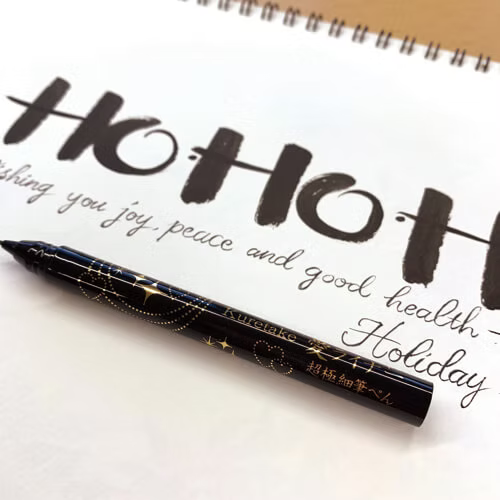 HO HO H
shing you joy, peace and good health -
Holiday
Kuretake
超極細筆ぺん